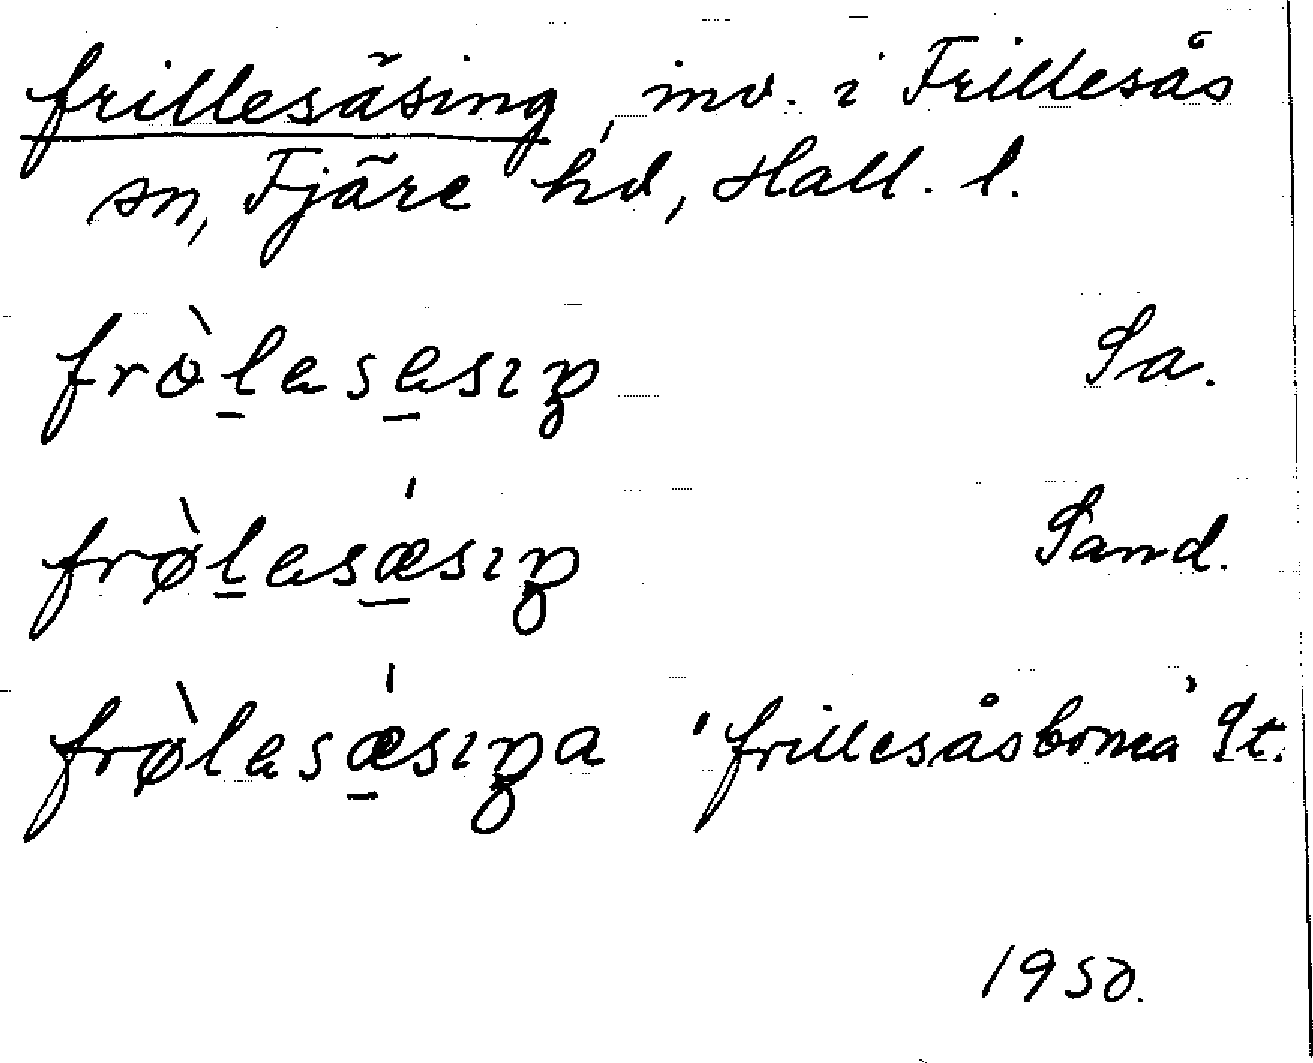 frillesäsing, inv. i Frillesås
sn, Fjäre hd, Hall. l.
fròl̠esa̠sıŋ Sa.
frø̀l̠esǽ̠sıŋ Sand.
frø̀lesǽ̠sıŋa 'frillesåsborna' St.
1950.